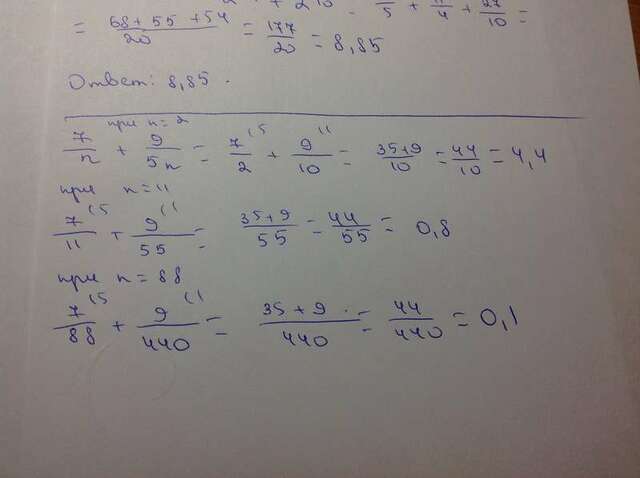 5 + 11/4 + 27/10 =
= 68 + 55 + 54 / 20 = 177/20 = 8,85
Ответ: 8,85.
при n=2
7/n + 9/5n = 7/2 (5 + 9/10 (1 = 35+9/10 = 44/10 = 4,4
при n=11
7/11 (5 + 9/55 (1 = 35+9/55 = 44/55 = 0,8
при n=88
7/88 (5 + 9/440 (1 = 35 + 9/440 = 44/440 = 0,1